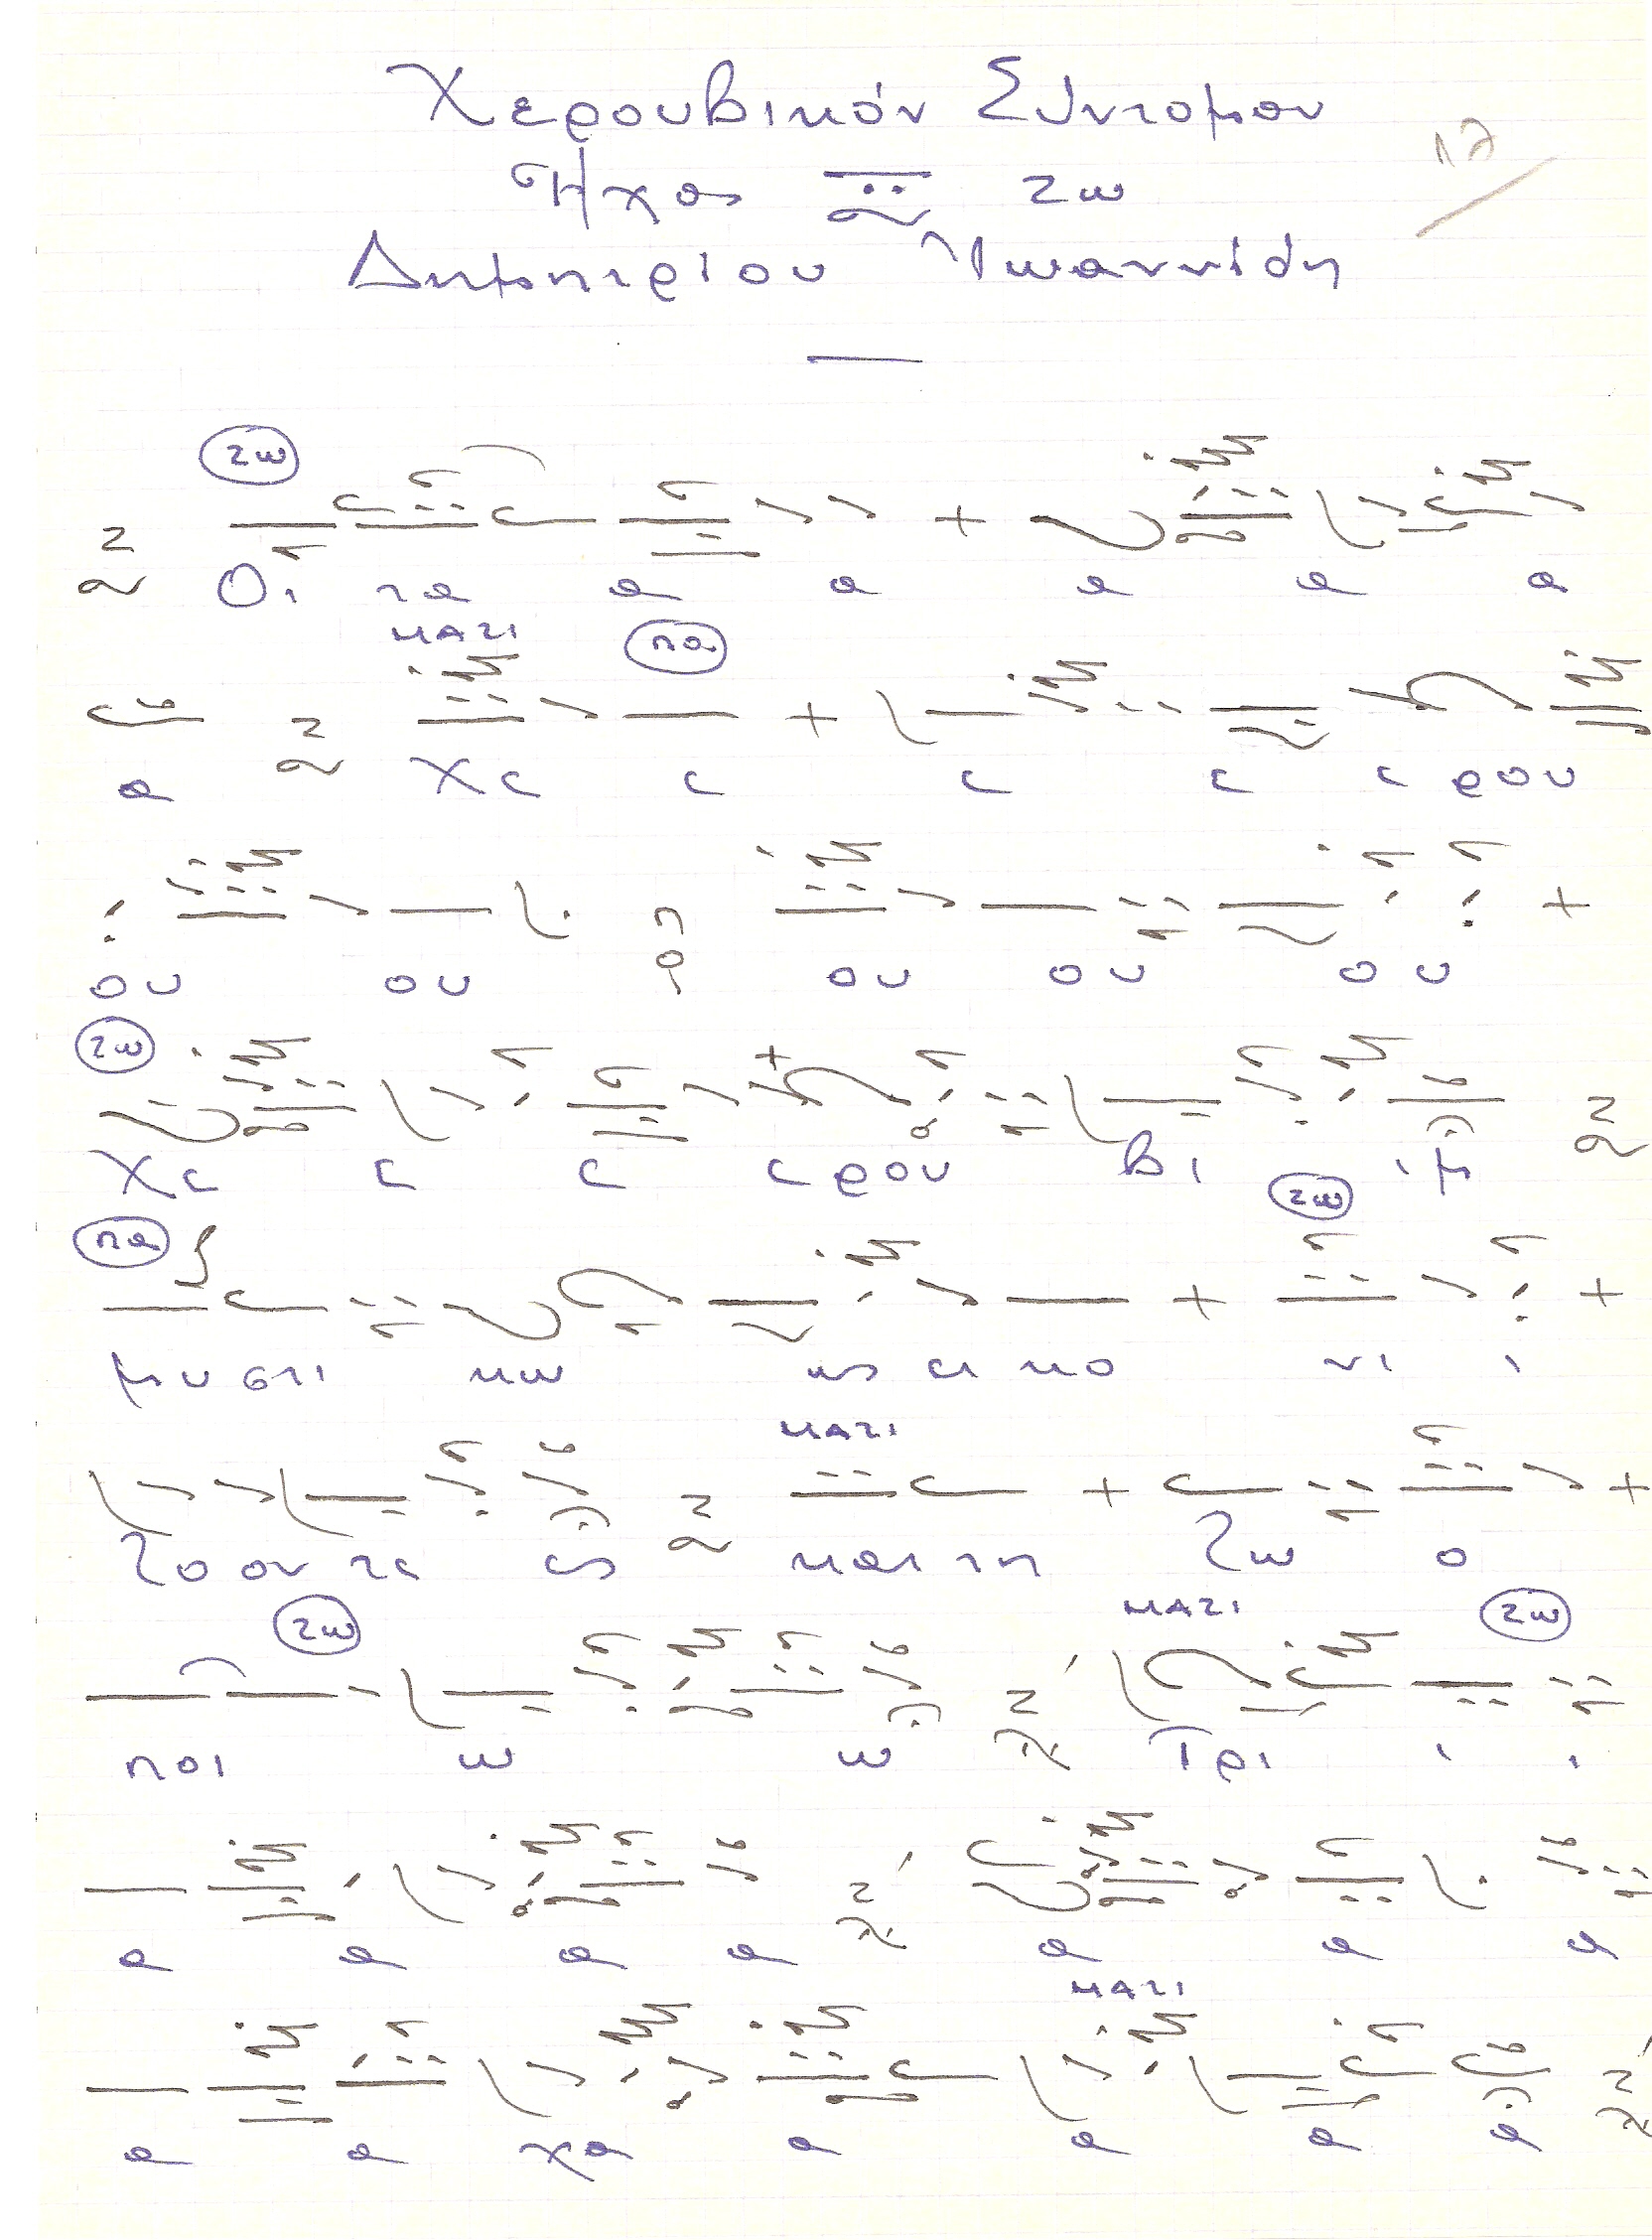 Χερουβικόν Σύντομον
17
Ἦχος Ζω
Δημητρίου Ἰωαννίδη
Ζω
Οι τα α α α α α
ΜΑΖΙ πα
α Χε ε ε ε ε ρου
ου ου ου ου ου
Ζω
Χε ε ε ε ρου βι ιμ
πα Ζω
μυ στι κω ως ει κο νι ι
ΜΑΖΙ
ζο ον τε ες και τη ζω ο
Ζω ΜΑΖΙ Ζω
ποι ω ω Τρι ι ι
α α α α α α α
ΜΑΖΙ
α α χα α α α α